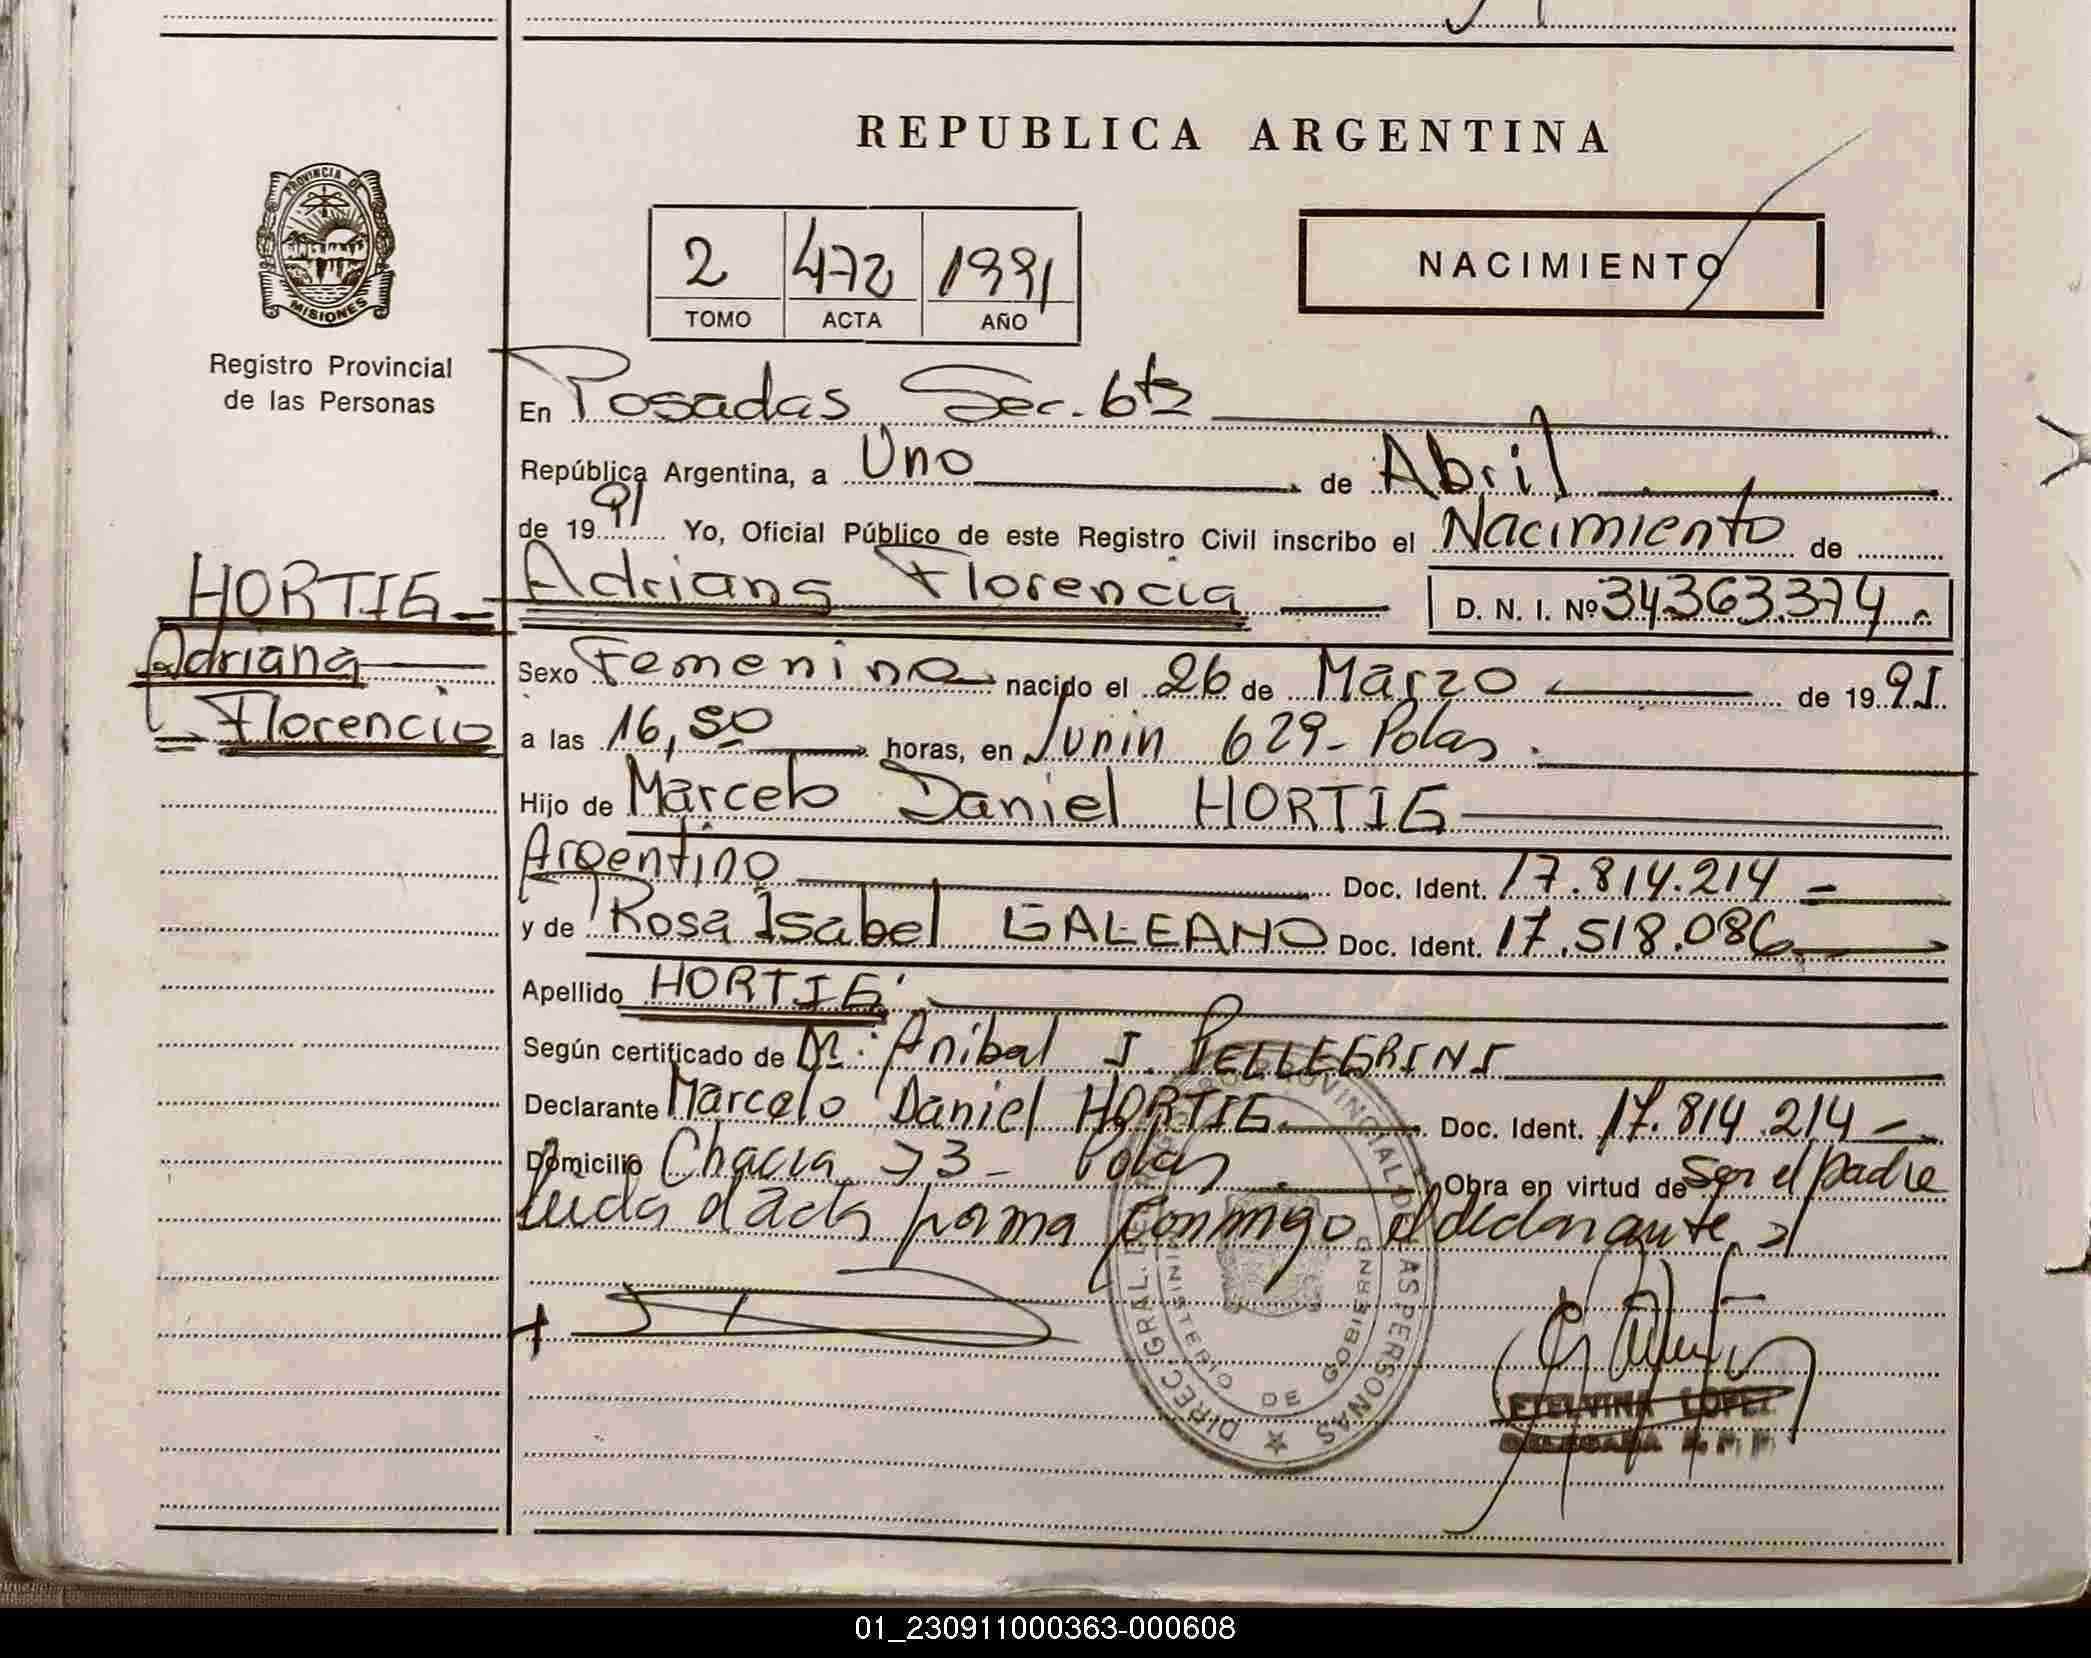 REPUBLICA ARGENTINA
PROVINCIA DE
MISIONES
Registro Provincial
de las Personas
2 472 1991
TOMO ACTA AÑO
NACIMIENTO
En Posadas Sec. 6ta
República Argentina, a Uno de Abril
de 1991 Yo, Oficial Público de este Registro Civil inscribo el Nacimiento de
HORTIG
Adriana
Florencia
Adriana Florencia D. N. I. Nº 34363.374
Sexo Femenino nacido el 26 de Marzo de 1991
a las 16,50 horas, en Junin 629 - Pdas.
Hijo de Marcelo Daniel HORTIG
Argentino Doc. Ident. 17.814.214
y de Rosa Isabel GALEANO Doc. Ident. 17.518.086
Apellido HORTIG
Según certificado de Anibal J. PELLEGRINI
Declarante Marcelo Daniel HORTIG Doc. Ident. 17.814.214
Domicilio Chacra 73 - Pdas Obra en virtud de Ser el padre
Leida el acta firma conmigo el declarante
DIREC. GRAL. DEL REGISTRO PROVINCIAL DE LAS PERSONAS
MINISTERIO DE GOBIERNO
ETELVINA LOPEZ
DELEGADA
01_230911000363-000608